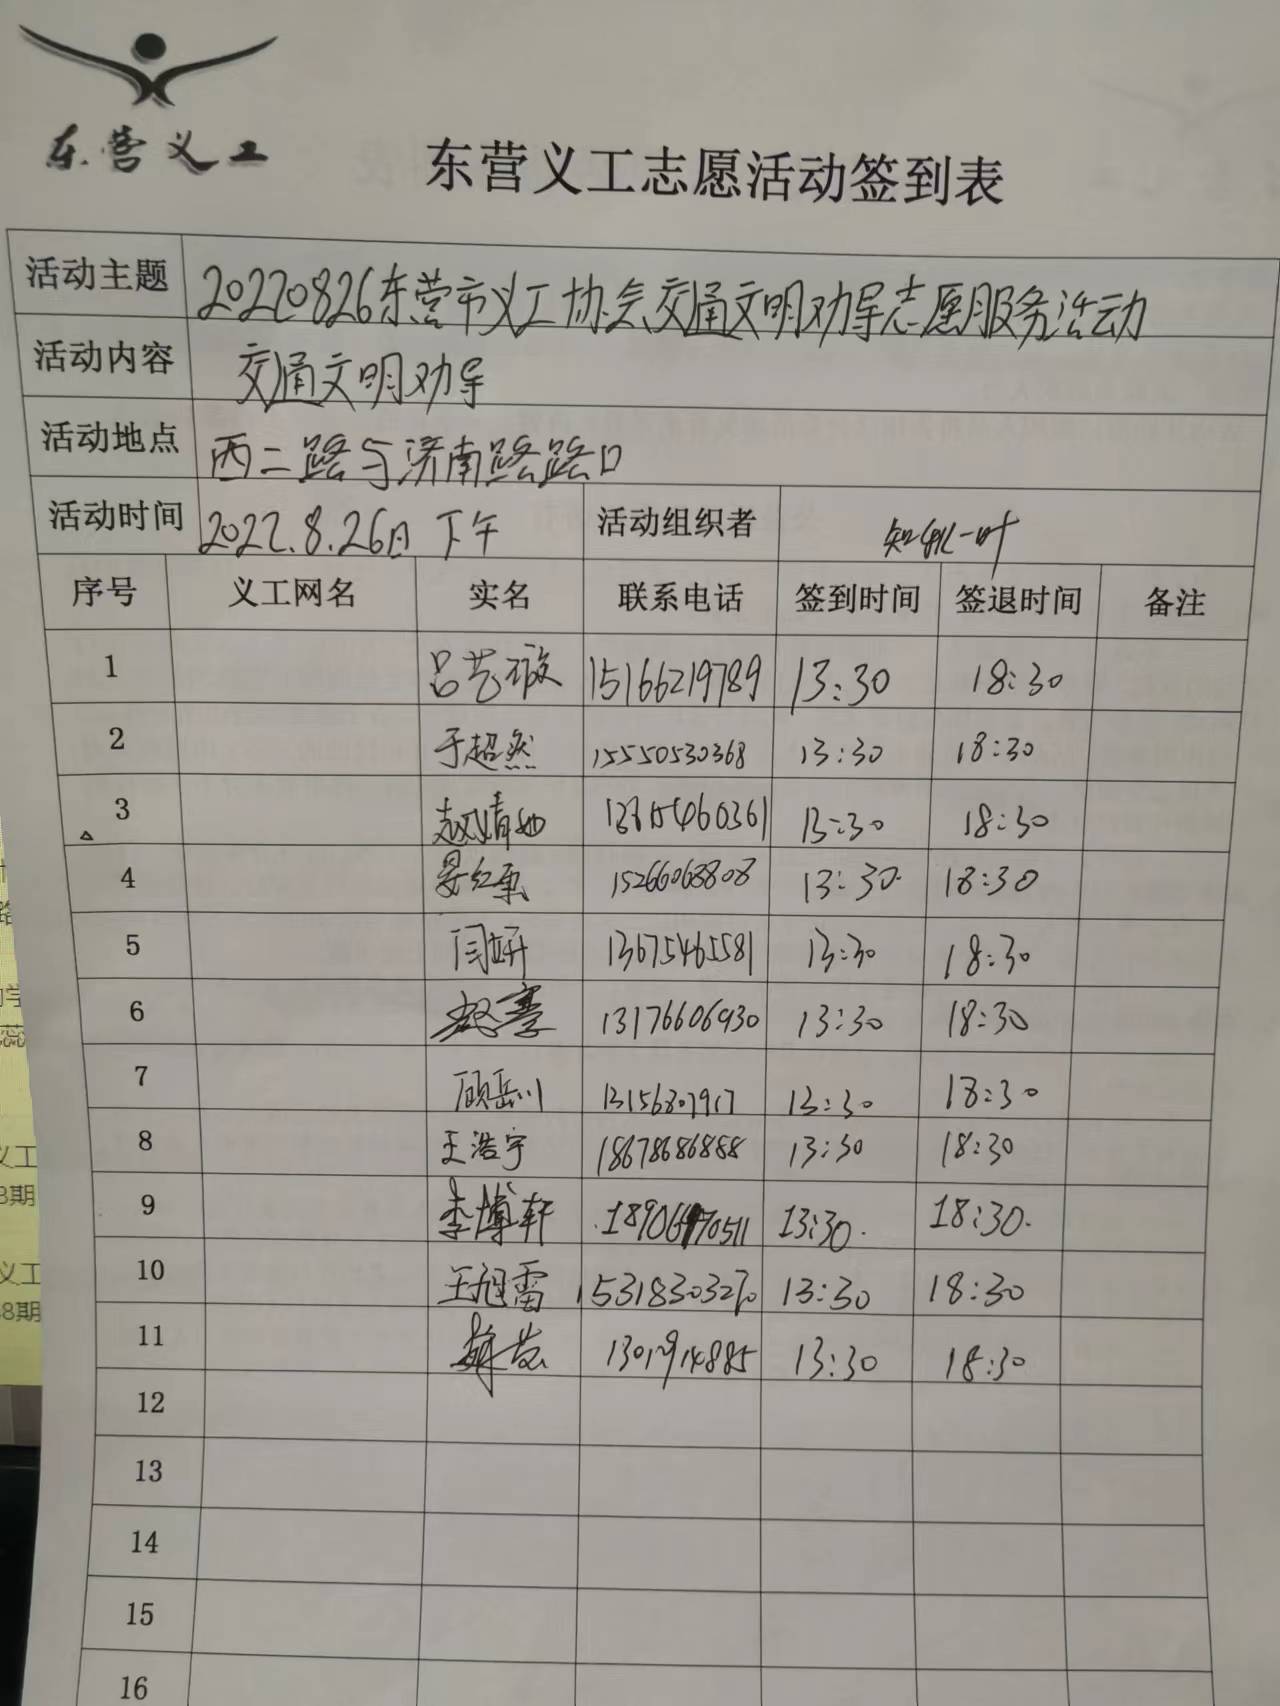 东营义工
东营义工志愿活动签到表
活动主题 20220826东营市义工协会交通文明劝导志愿服务活动
活动内容 交通文明劝导
活动地点 西二路与济南路路口
活动时间 2022.8.26日 下午 活动组织者 知秋一叶
序号 义工网名 实名 联系电话 签到时间 签退时间 备注
1 吕艺璇 15166219789 13:30 18:30
2 于超然 15550530368 13:30 18:30
3 赵婧如 13:30 18:30
4 15266068808 13:30 18:30
5 闫妍 13675465581 13:30 18:30
6 13176606930 13:30 18:30
7 顾岳川 13:30 18:30
8 王浩宇 18678686888 13:30 18:30
9 李博轩 13:30 18:30
10 王旭雷 13:30 18:30
11 薛芸 13:30 18:30
12
13
14
15
16
学
蕊
义工
8期
义工
8期